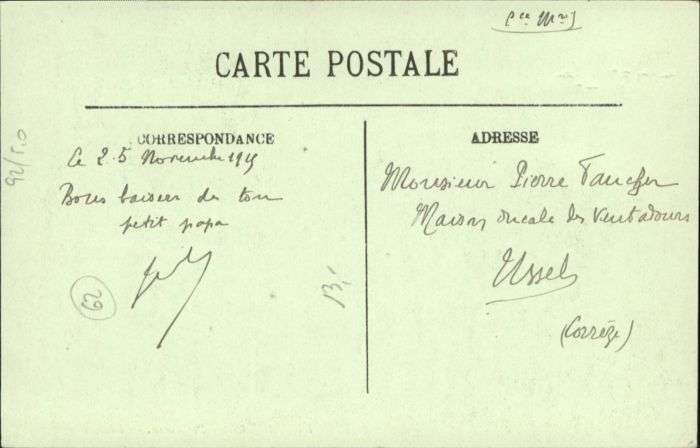 (Pce Mre)
CARTE POSTALE
CORRESPONDANCE
Le 25 Novembre 1915
Bons baisers de ton
petit papa
62
13,-
92/50
ADRESSE
Monsieur Pierre Faucher
Maison ducale des Ventadours
Ussel
(Corrèze)